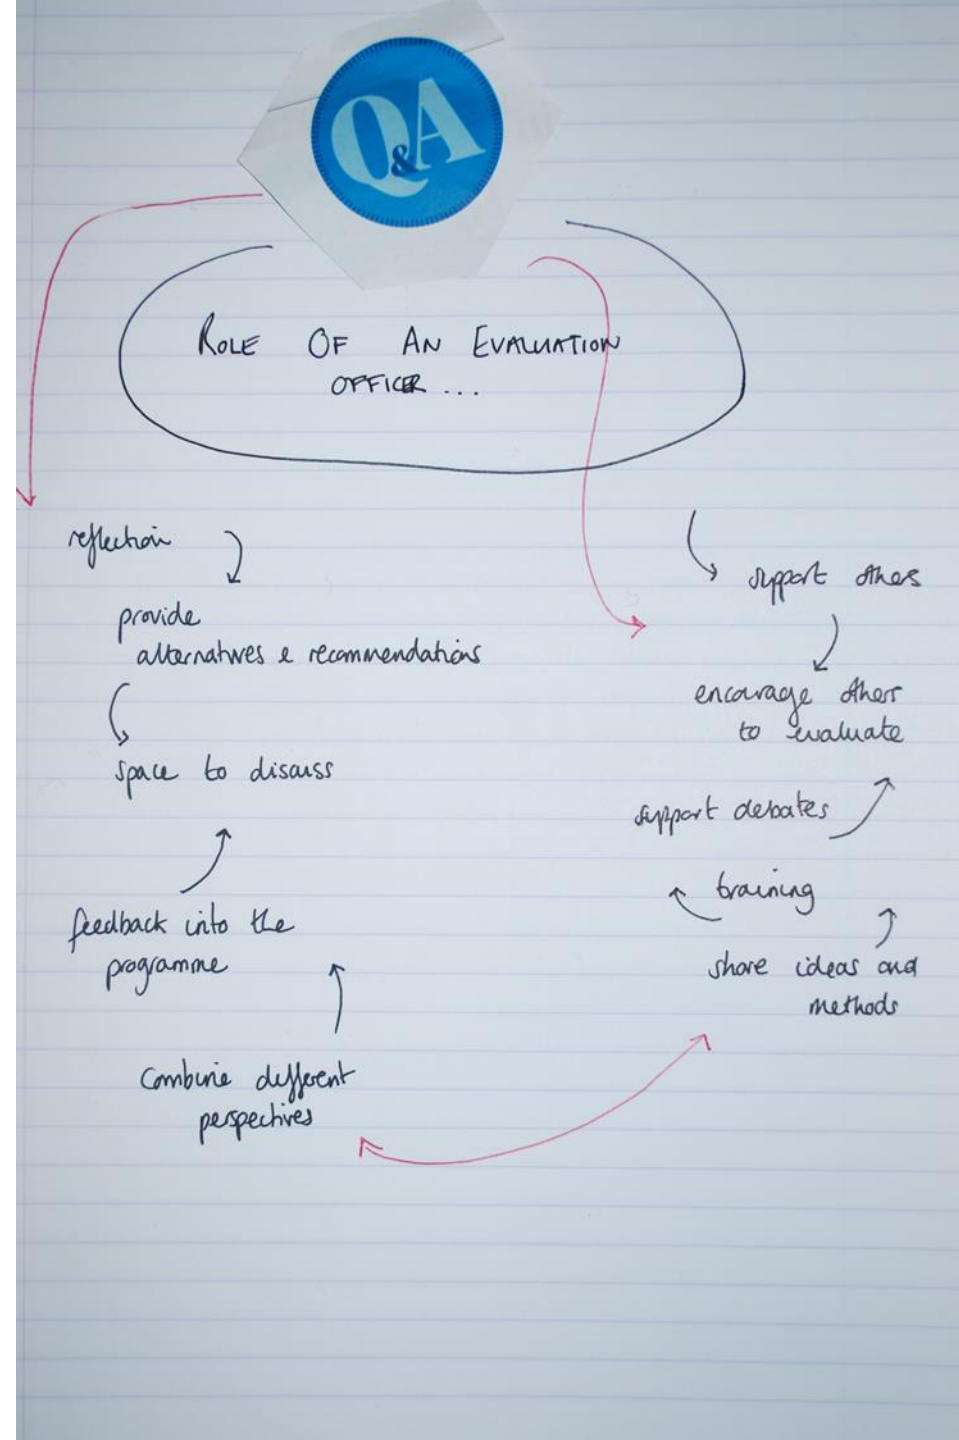 Q&A
ROLE OF AN EVALUATION
OFFICER...
reflection
provide
alternatives & recommendations
space to discuss
feedback into the
programme
Combine different
perspectives
support others
encourage others
to evaluate
support debates
training
share ideas and
methods